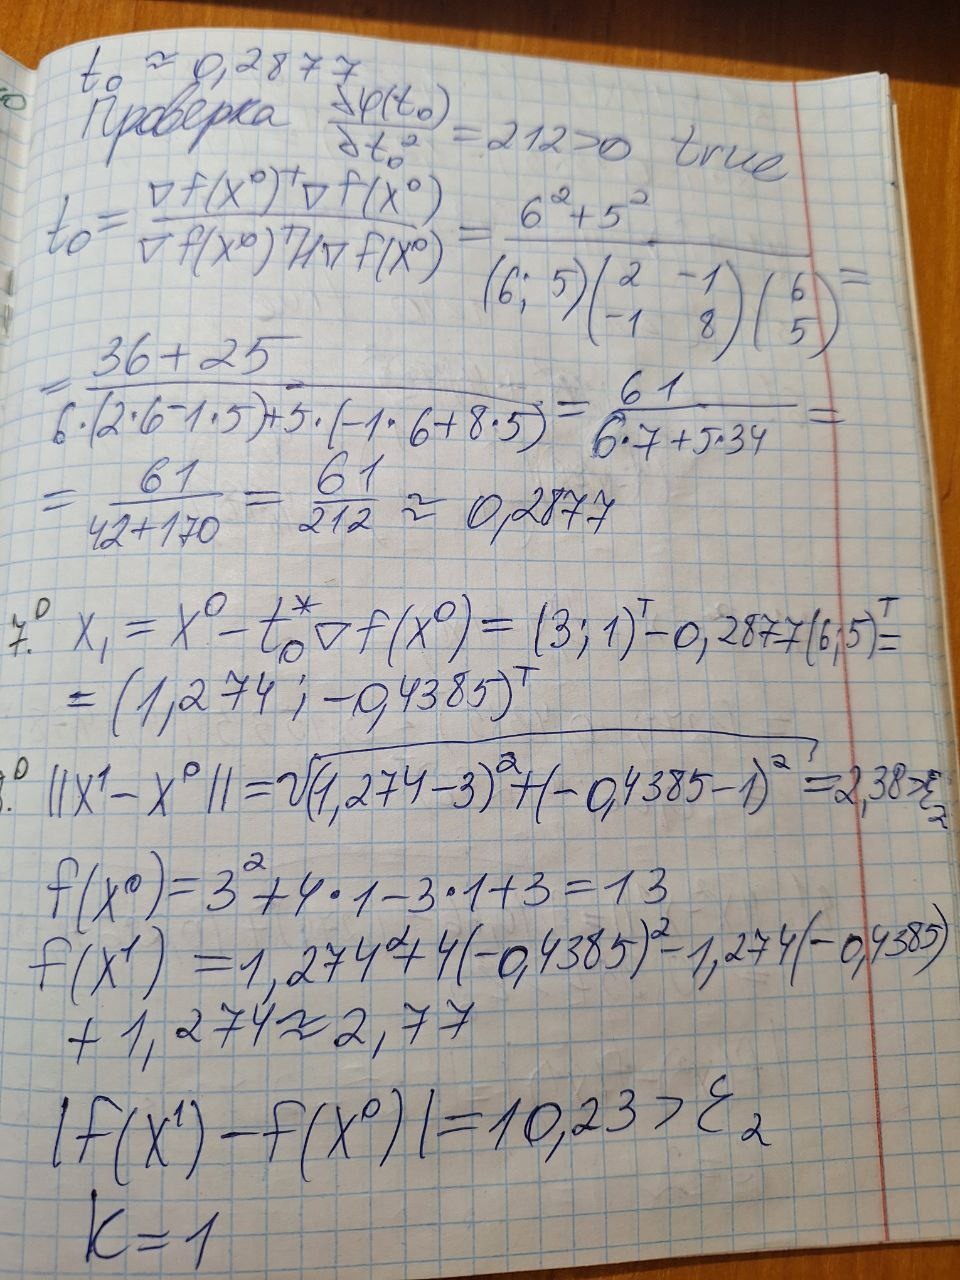 t₀ ≈ 0,2877
Проверка δφ(t₀)/δt₀² = 212>0 true
t₀ = ∇f(x⁰)ᵀ∇f(x⁰) / ∇f(x⁰)ᵀH∇f(x⁰) = 6²+5² / (6; 5)(2 -1 -1 8)(6 5) =
= 36+25 / 6·(2·6-1·5)+5·(-1·6+8·5) = 61 / 6·7+5·34 =
= 61 / 42+170 = 61 / 212 ≈ 0,2877
7.⁰ x₁ = x⁰ - t₀*∇f(x⁰) = (3; 1)ᵀ - 0,2877(6;5)ᵀ =
= (1,274; -0,4385)ᵀ
||x¹ - x⁰|| = √(1,274-3)²+(-0,4385-1)² = 2,38>ε₂
f(x⁰) = 3²+4·1-3·1+3=13
f(x¹) = 1,274²+4(-0,4385)²-1,274(-0,4385)
+1,274≈2,77
|f(x¹)-f(x⁰)|=10,23>ε₂
K=1